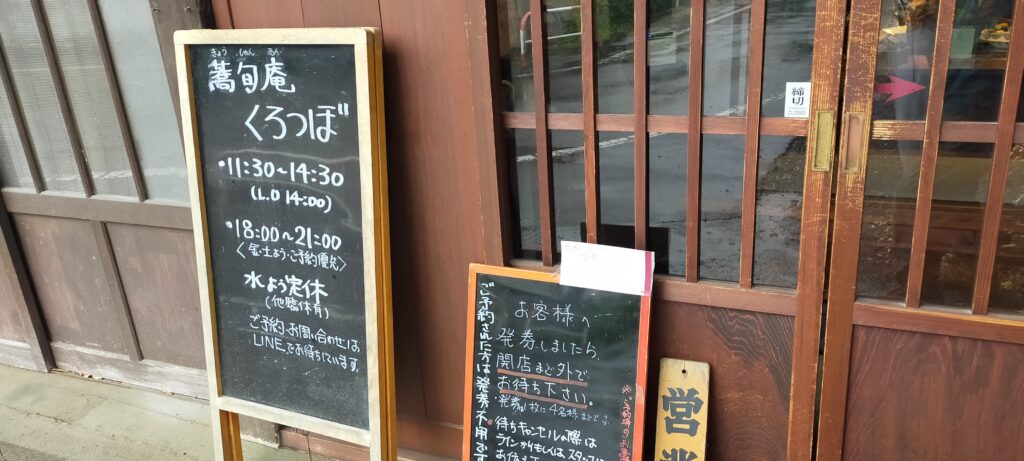 きょう じゅん あん
蕎旬庵
くろつぼ
・11:30〜14:30
(L.O 14:00)
・18:00〜21:00
〈金・土よう・ご予約優先〉
水よう定休
(他臨休有)
ご予約・お問い合わせは
LINEでお待ちしています。
ご予約された方は発券不用です
お客様へ
発券しましたら、
開店まで外で
お待ち下さい。
発券1枚に4名様までです。
・待ちキャンセルの際は
ラインからもしくはスタッフに
締切
CLOSED
営業